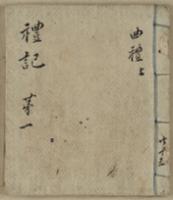 曲禮上
禮記
第一